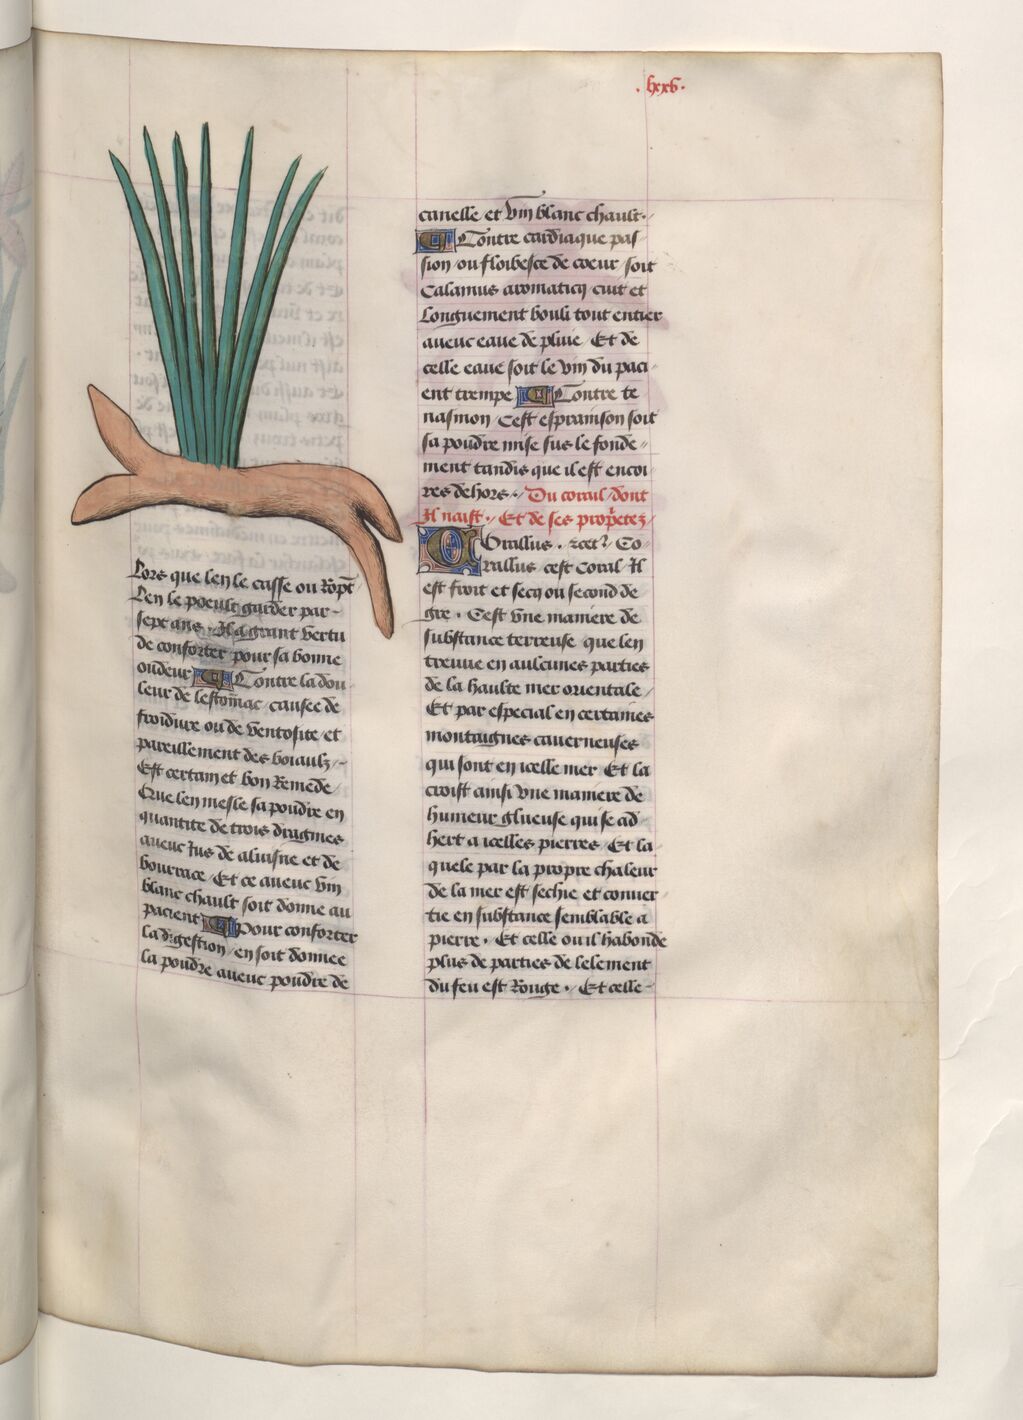 .lxxv.
Lors que len le casse ou Ropt
Len le poeult garder par-
sept ans . Il a grant vertu
de conforter pour sa bonne
oudeur Contre la dou
leur de lestomac causee de
froidure ou de ventosite et
pareillement des boiaulz /
Est certain et bon Remede
Que len mesle sa pouldre en
quantite de trois dragmes
aveuc Jus de aluisne et de
bourrace / Et ce aveuc vin
blanc chault soit donne au
pacient Pour conforter
la digestion / en soit donnee
la pouldre aveuc pouldre de
canelle et vin blanc chault.
Contre cardiaque pas
sion / ou floibesce de coeur / soit
Calamus aromaticq cuit et
Longuement bouli tout entier
aveuc eaue de pluie / Et de
celle eaue soit le vin du paci
ent trempe Contre te
nasmon / Cest espramson soit
sa pouldre mise sus le fonde
ment tandis que il est encoi
res dehors . Du corail / dont
Il naist . / Et de ses propretez /
Corallus . &cet. / Co
rallus cest Coral Il
est froit et secq ou second de
gre . Cest vne maniere de
substance terreuse que len
treuue en aulcunes parties
de la haulte mer orientale /
Et par especial en certaines
montaignes cauerneuses
qui sont en icelle mer Et la
croist ainsi vne maniere de
humeur glueuse qui se ad
hert a icelles pierres / Et la
quele par la propre chaleur
de la mer est sechie et conuer
tie en substance semblable a
pierre . Et celle ou il habonde
plus de parties de lelement
du feu est Rouge . / Et celle -